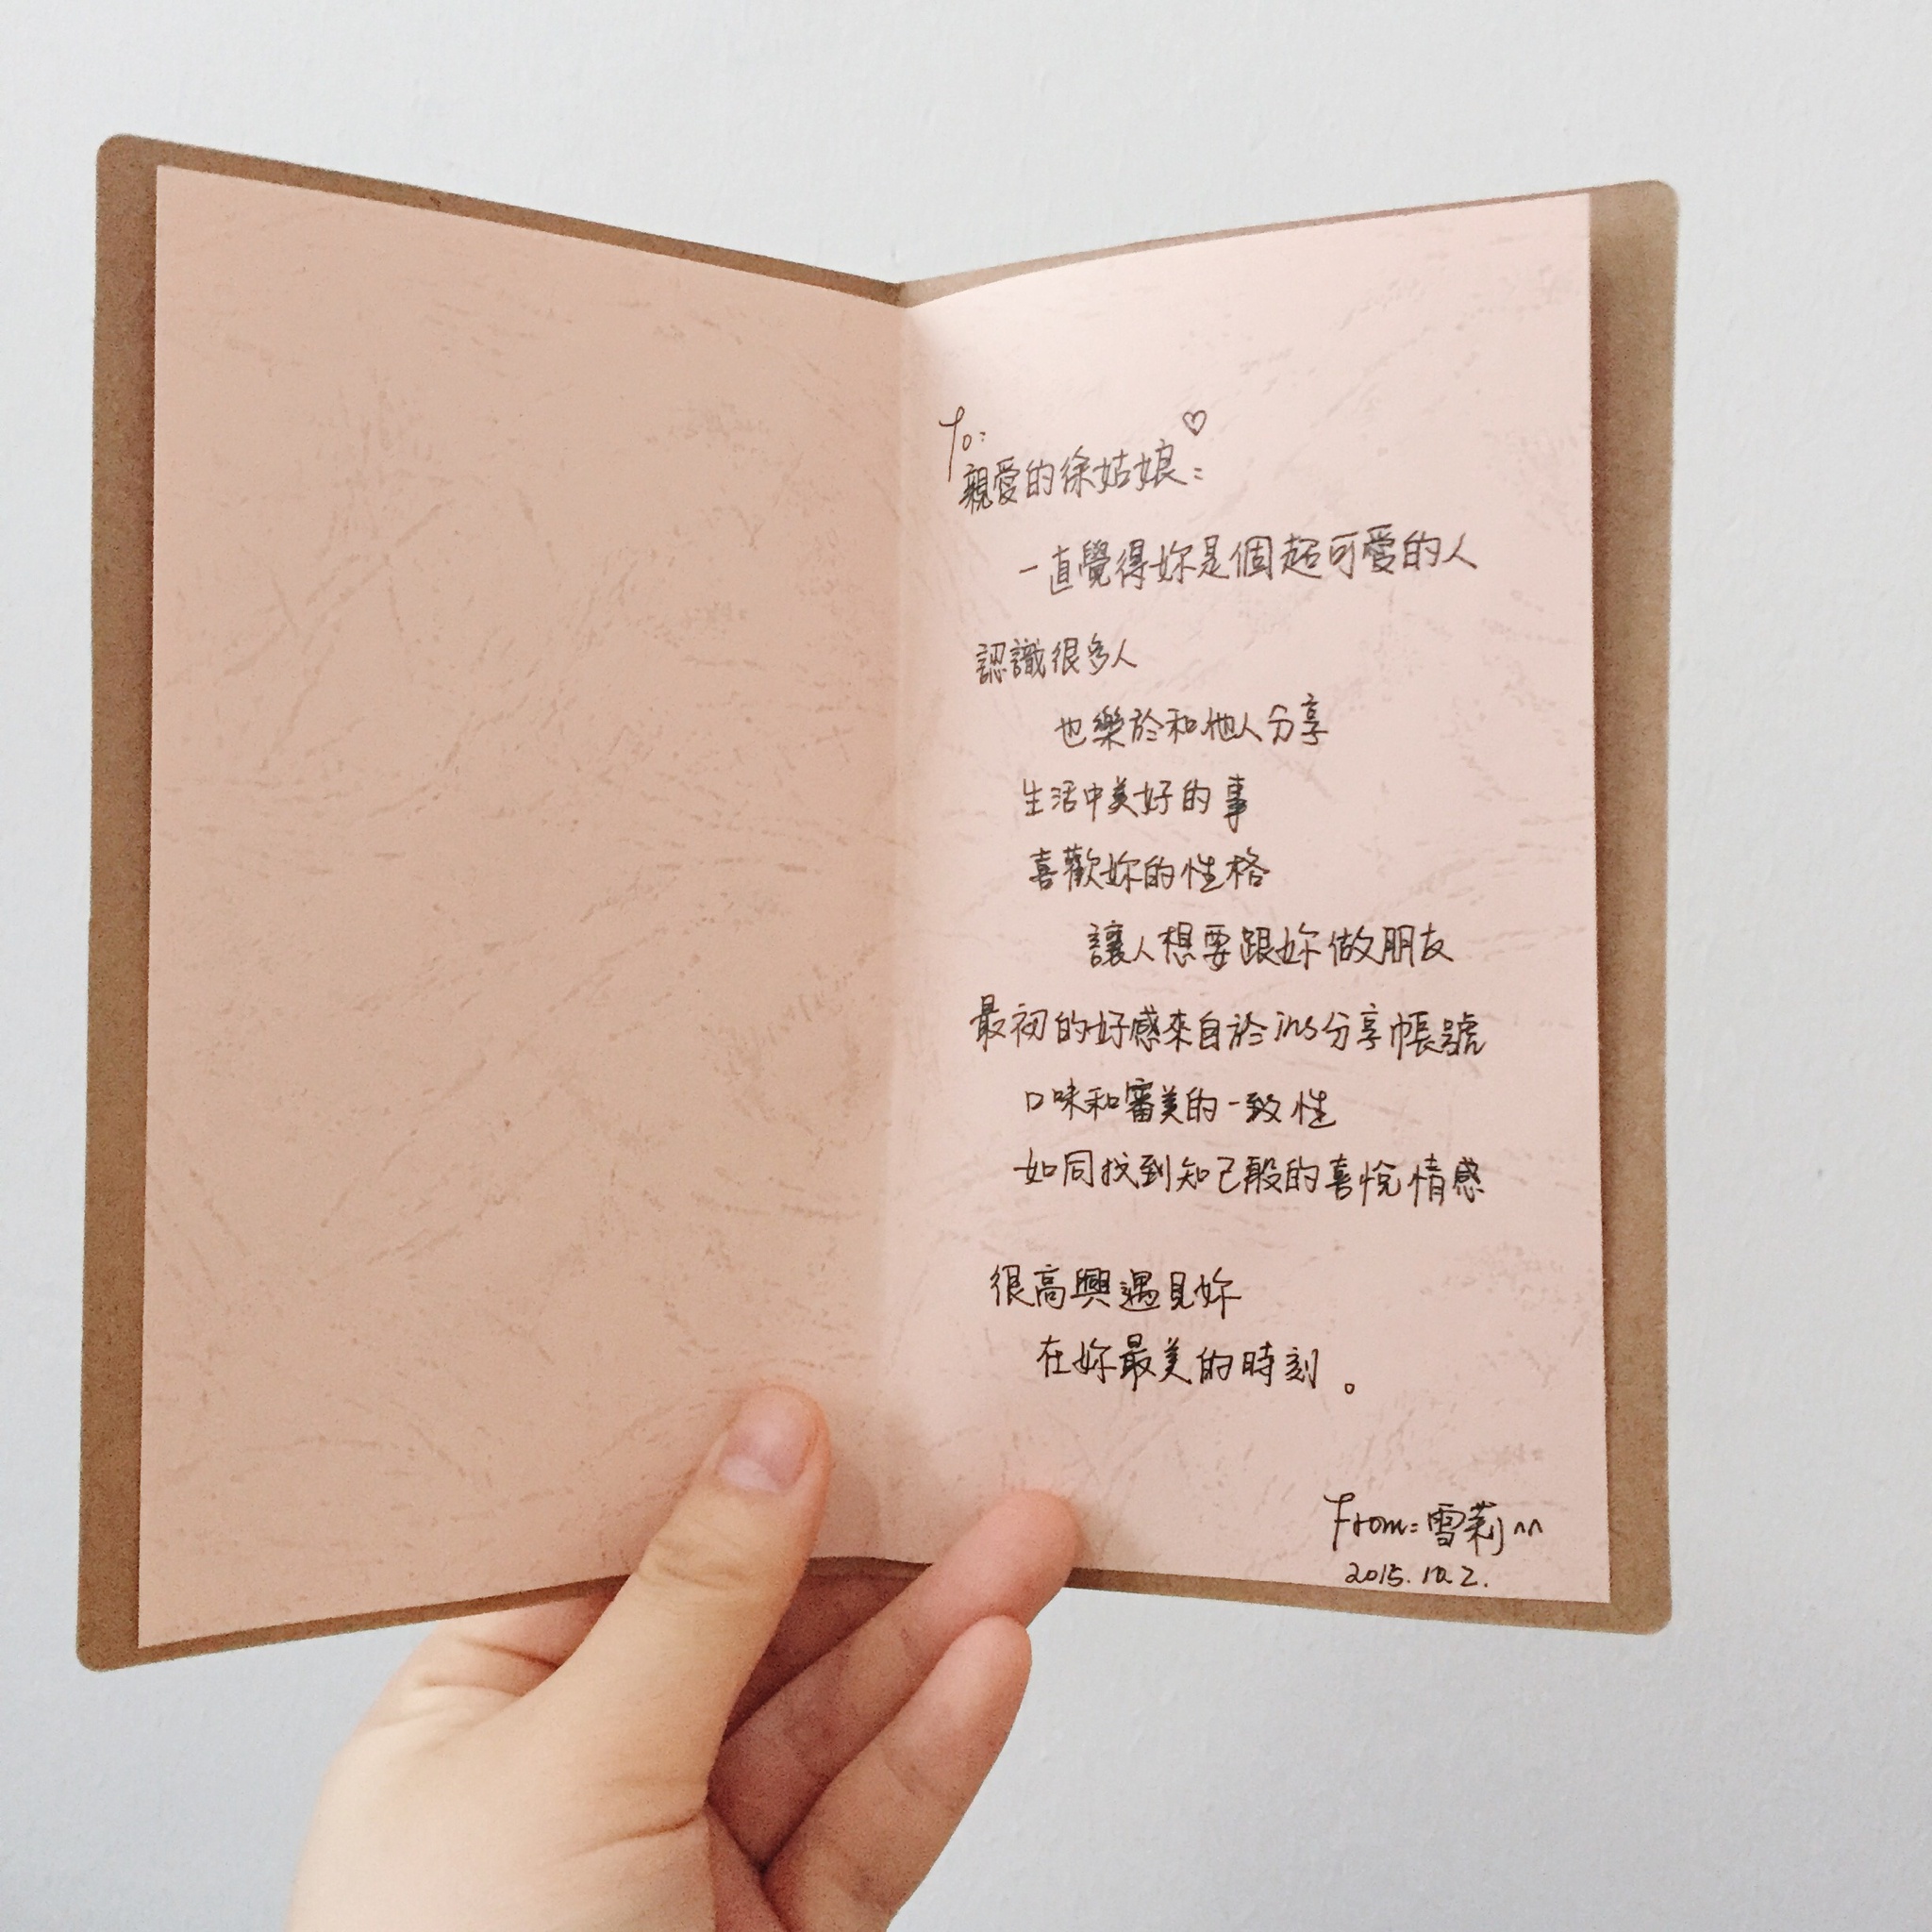 To:
親愛的徐姑娘: ♡
一直覺得妳是個超可愛的人
認識很多人
也樂於和他人分享
生活中美好的事
喜歡妳的性格
讓人想要跟妳做朋友
最初的好感來自於ins分享帳號
口味和審美的一致性
如同找到知己般的喜悅情感
很高興遇見妳
在妳最美的時刻。
From:雪莉^^
2015.10.2.